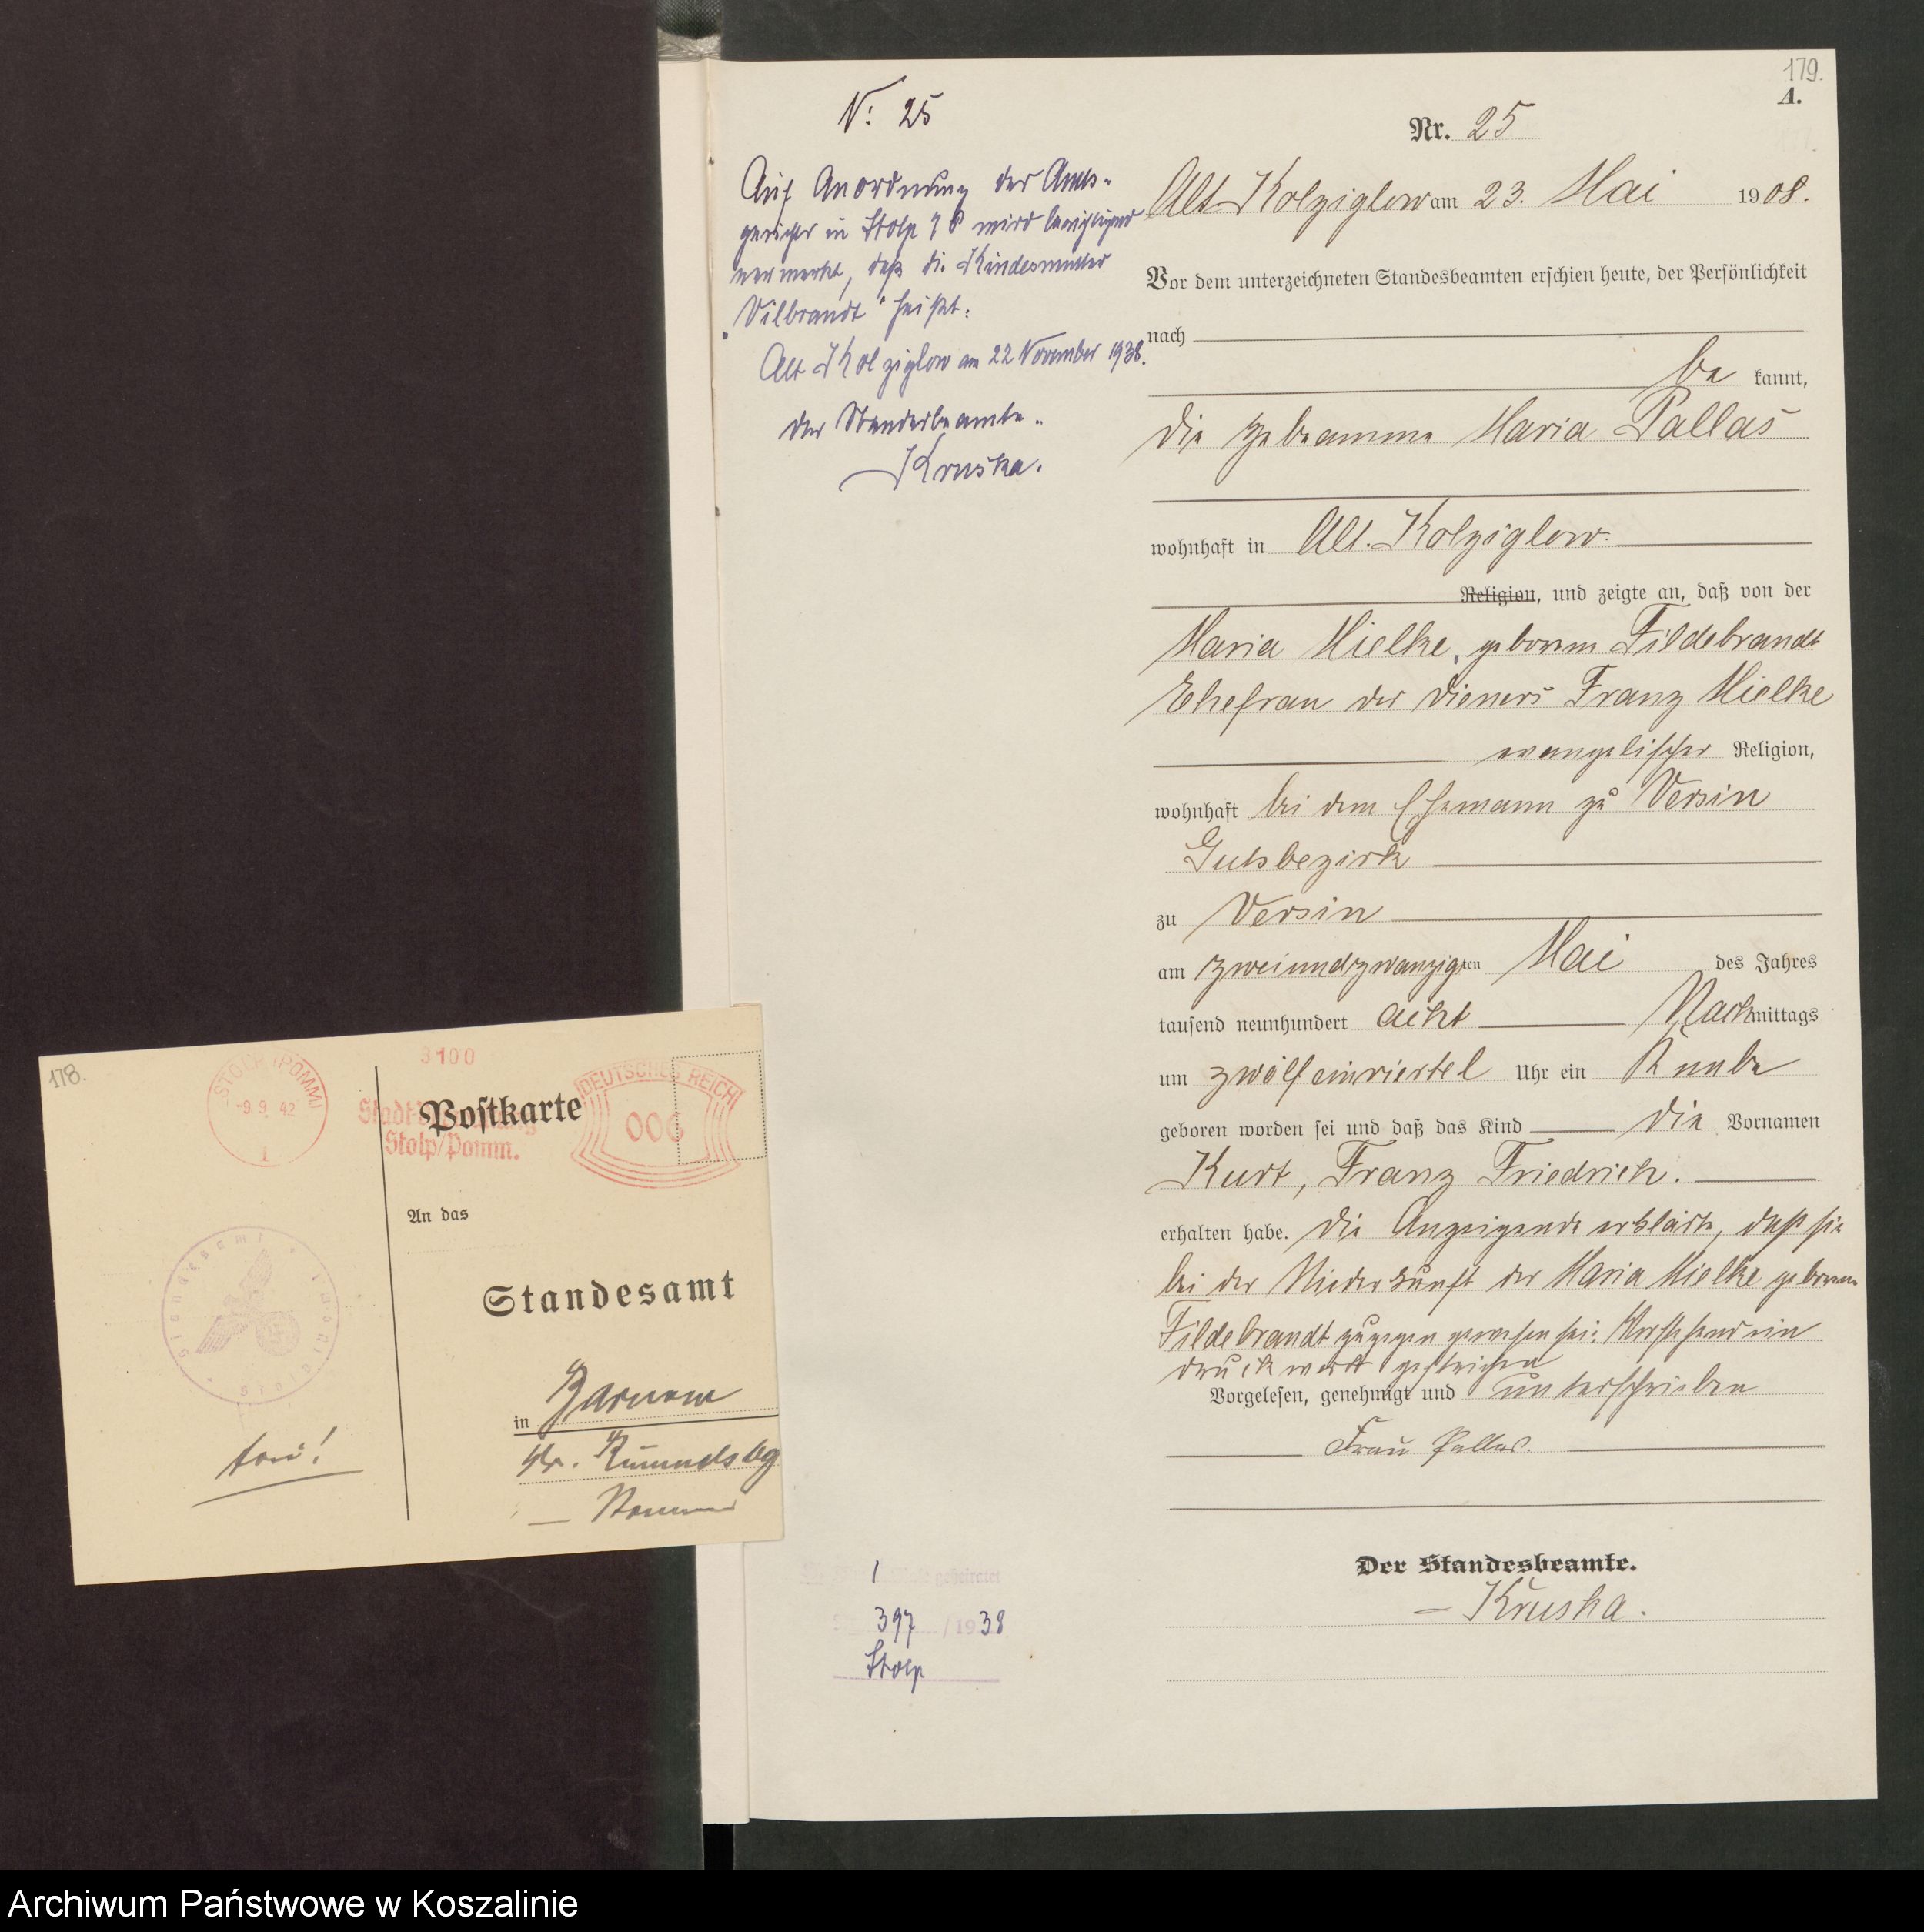 179.
A.
N: 25
Auf Anordnung des Amts-
gerichts in Stolp wird berichtigend
vermerkt, daß die Kindesmutter
„Vilbrandt" heißt.
Alt Kolziglow am 22 November 1938.
Der Standesbeamte.
Kruska.
1 geheiratet
397 / 1938
Stolp
Nr. 25
Alt Kolziglow am 23. Mai 1908.
Vor dem unterzeichneten Standesbeamten erschien heute, der Persönlichkeit
nach
be kannt,
die Hebeamme Maria Pallas
wohnhaft in Alt. Kolziglow.
Religion, und zeigte an, daß von der
Maria Mielke, geborene Fildebrandt
Ehefrau des Dieners Franz Mielke
evangelischer Religion,
wohnhaft bei dem Ehemann zu Versin
Gutsbezirk
zu Versin
am zweiundzwanzigten Mai des Jahres
tausend neunhundert acht Nachmittags
um zwölfeinviertel Uhr ein Knabe
geboren worden sei und daß das Kind die Vornamen
Kurt, Franz Friedrich.
erhalten habe. Die Anzeigende erklärte, daß sie
bei der Niederkunft der Maria Mielke geborene
Fildebrandt zugegen gewesen sei. Vorstehend ein
Druckwort gestrichen
Vorgelesen, genehmigt und unterschrieben
Frau Pallas.
Der Standesbeamte.
Kruska.
178.
STOLP (POMM)
-9.9.42
1
3100
Stadt
Stolp/Pomm.
DEUTSCHES REICH
006
Postkarte
An das
Standesamt
in Barnow
Kr. Rummelsbg
Pommern
Archiwum Państwowe w Koszalinie